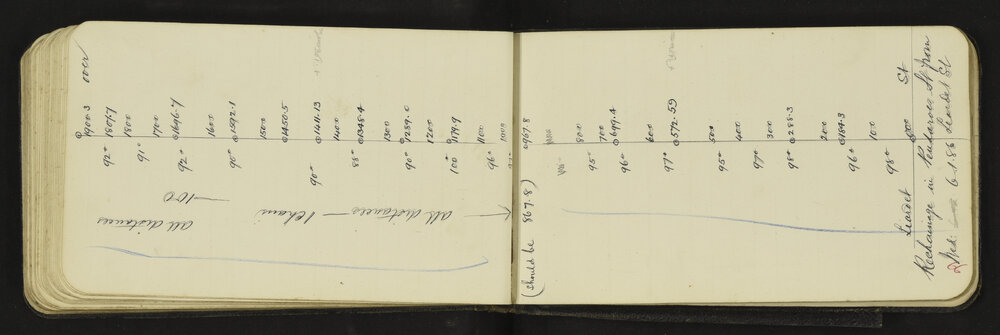 1900.3 over
92° 1807.7
1800
91°
1700
92° 1696.7
1600
90° 1592.1
1500
1450.5
90° 1411.13
1400
88° 1348.4
1300
90° 1289.0
1200
100° 1179.9
1100
96°
1000
all distances
— 100
all distances — 1 chain
(should be 867.8) 967.8
800
95° 700
96° 699.4
600
97° 572.59
95° 500
400
97° 300
98° 288.3
200
96° 184.3
98° 100
Liardet 000 St
Rechainage in Pendarves St from
Wed: 6.1.86 Liardet St